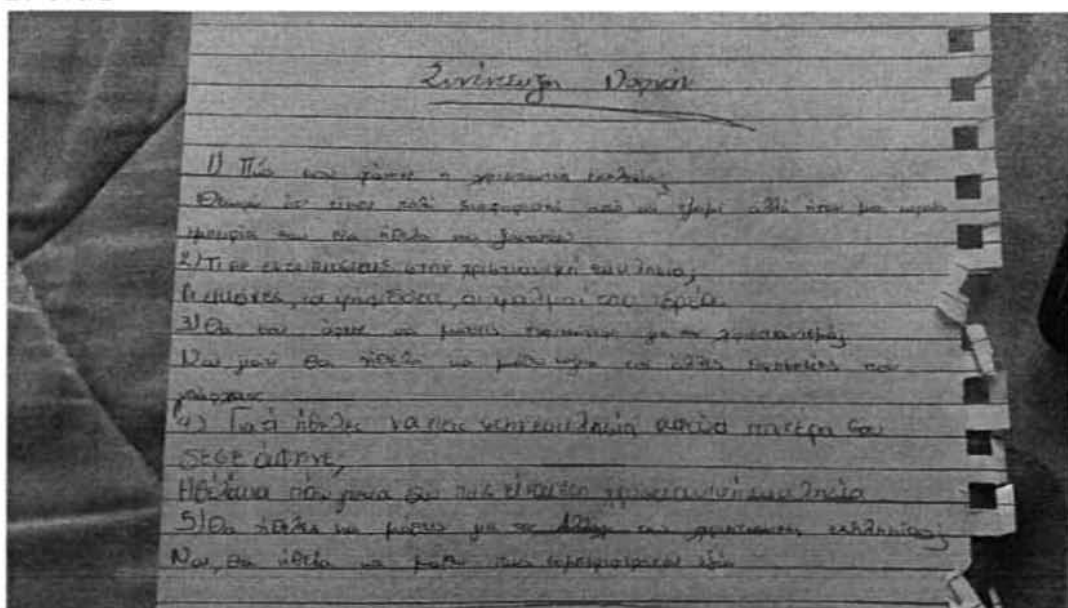 Συνέντευξη
1) Πώς σου φάνηκε η χριστιανική εκκλησία;
Θεωρώ ότι είναι πολύ διαφορετική από το τζαμί αλλά ήταν μια ωραία
εμπειρία και θα ήθελα να
2) Τι σε εντυπωσίασε στην χριστιανική εκκλησία;
Οι εικόνες, τα ψηφιδωτά, οι ψαλμοί του ιερέα.
3) Θα σου άρεσε να μάθεις περισσότερα για το χριστιανισμό;
Ναι γιατί θα ήθελα να μάθω για τις άλλες θρησκείες που
υπάρχουν
4) Γιατί ήθελες να πας στην εκκλησία αφού ο πατέρα σου
δε σε άφηνε;
Ήθελα να πάω για να δω πώς είναι η χριστιανική εκκλησία
5) Θα ήθελες να μάθεις για τις της χριστιανικής εκκλησίας;
Ναι, θα ήθελα να μάθω πως συμπεριφέρονται έξω